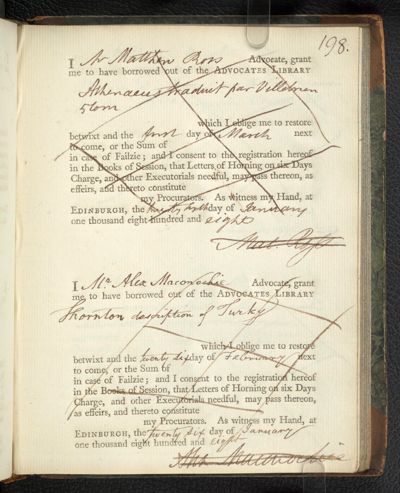 198.
I Mr Matthew Ross Advocate, grant
me to have borrowed out of the ADVOCATES LIBRARY
Athenaeus traduit par Villebrun
5 tom
which I oblige me to restore
betwixt and the first day of March next
to come, or the Sum of
in case of Failzie; and I consent to the registration hereof
in the Books of Session, that Letters of Horning on six Days
Charge, and other Executorials needful, may pass thereon, as
effeirs, and thereto constitute
my Procurators. As witness my Hand, at
EDINBURGH, the day of January
one thousand eight hundred and eight
Mat. Ross
I Mr. Alex Maconochie Advocate, grant
me, to have borrowed out of the ADVOCATES LIBRARY
Thornton description of Turky
which I oblige me to restore
betwixt and the twenty six day of February next
to come, or the Sum of
in case of Failzie; and I consent to the registration hereof
in the Books of Session, that Letters of Horning on six Days
Charge, and other Executorials needful, may pass thereon,
as effeirs, and thereto constitute
my Procurators. As witness my Hand, at
EDINBURGH, the twenty six day of January
one thousand eight hundred and eight
Alex Maconochie